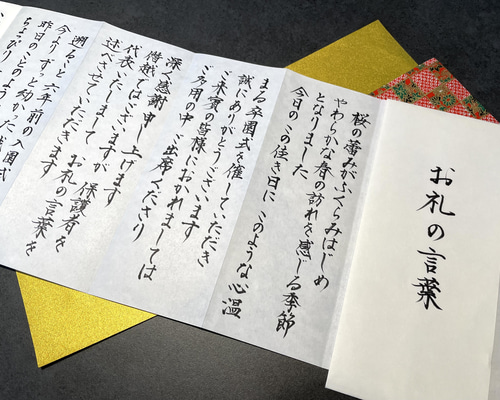 お礼の言葉
桜の蕾みがふくらみはじめ
やわらかな春の訪れを感じる季節
となりました
今日のこの佳き日に このような心温
まる卒園式を催していただき
誠にありがとうございます
ご来賓の皆様におかれましては
ご多用の中 ご出席くださり
深く感謝申し上げます
僭越ではございますが 保護者を
代表いたしまして お礼の言葉を
述べさせていただきます
遡ること 六年前の入園式
今よりずっと幼かった
昨日のことのよう
ちょぴり